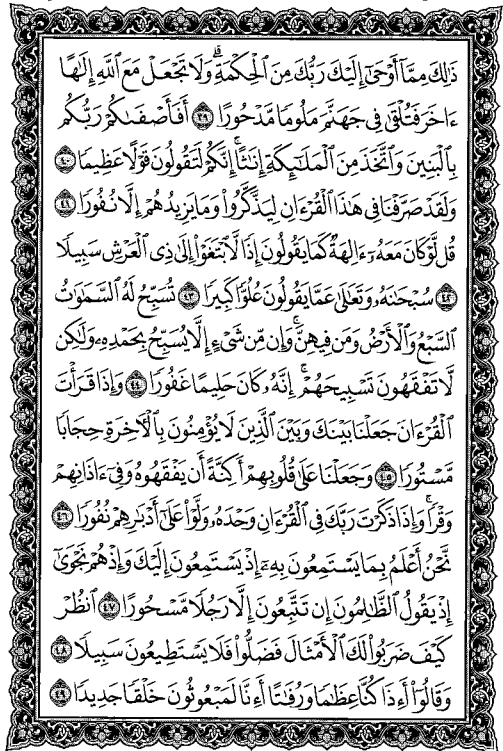 ذَٰلِكَ مِمَّآ أَوۡحَىٰٓ إِلَيۡكَ رَبُّكَ مِنَ ٱلۡحِكۡمَةِۗ وَلَا تَجۡعَلۡ مَعَ ٱللَّهِ إِلَٰهًا
ءَاخَرَ فَتُلۡقَىٰ فِي جَهَنَّمَ مَلُومٗا مَّدۡحُورًا ٣٩ أَفَأَصۡفَىٰكُمۡ رَبُّكُم
بِٱلۡبَنِينَ وَٱتَّخَذَ مِنَ ٱلۡمَلَٰٓئِكَةِ إِنَٰثًاۚ إِنَّكُمۡ لَتَقُولُونَ قَوۡلًا عَظِيمٗا ٤٠
وَلَقَدۡ صَرَّفۡنَا فِي هَٰذَا ٱلۡقُرۡءَانِ لِيَذَّكَّرُواْ وَمَا يَزِيدُهُمۡ إِلَّا نُفُورٗا ٤١
قُل لَّوۡ كَانَ مَعَهُۥٓ ءَالِهَةٞ كَمَا يَقُولُونَ إِذٗا لَّٱبۡتَغَوۡاْ إِلَىٰ ذِي ٱلۡعَرۡشِ سَبِيلٗا
٤٢ سُبۡحَٰنَهُۥ وَتَعَٰلَىٰ عَمَّا يَقُولُونَ عُلُوّٗا كَبِيرٗا ٤٣ تُسَبِّحُ لَهُ ٱلسَّمَٰوَٰتُ
ٱلسَّبۡعُ وَٱلۡأَرۡضُ وَمَن فِيهِنَّۚ وَإِن مِّن شَيۡءٍ إِلَّا يُسَبِّحُ بِحَمۡدِهِۦ وَلَٰكِن
لَّا تَفۡقَهُونَ تَسۡبِيحَهُمۡۚ إِنَّهُۥ كَانَ حَلِيمًا غَفُورٗا ٤٤ وَإِذَا قَرَأۡتَ
ٱلۡقُرۡءَانَ جَعَلۡنَا بَيۡنَكَ وَبَيۡنَ ٱلَّذِينَ لَا يُؤۡمِنُونَ بِٱلۡأٓخِرَةِ حِجَابٗا
مَّسۡتُورٗا ٤٥ وَجَعَلۡنَا عَلَىٰ قُلُوبِهِمۡ أَكِنَّةً أَن يَفۡقَهُوهُ وَفِيٓ ءَاذَانِهِمۡ
وَقۡرٗاۚ وَإِذَا ذَكَرۡتَ رَبَّكَ فِي ٱلۡقُرۡءَانِ وَحۡدَهُۥ وَلَّوۡاْ عَلَىٰٓ أَدۡبَٰرِهِمۡ نُفُورٗا ٤٦
نَّحۡنُ أَعۡلَمُ بِمَا يَسۡتَمِعُونَ بِهِۦٓ إِذۡ يَسۡتَمِعُونَ إِلَيۡكَ وَإِذۡ هُمۡ نَجۡوَىٰٓ
إِذۡ يَقُولُ ٱلظَّٰلِمُونَ إِن تَتَّبِعُونَ إِلَّا رَجُلٗا مَّسۡحُورًا ٤٧ ٱنظُرۡ
كَيۡفَ ضَرَبُواْ لَكَ ٱلۡأَمۡثَالَ فَضَلُّواْ فَلَا يَسۡتَطِيعُونَ سَبِيلٗا ٤٨
وَقَالُوٓاْ أَءِذَا كُنَّا عِظَٰمٗا وَرُفَٰتًا أَءِنَّا لَمَبۡعُوثُونَ خَلۡقٗا جَدِيدٗا ٤٩